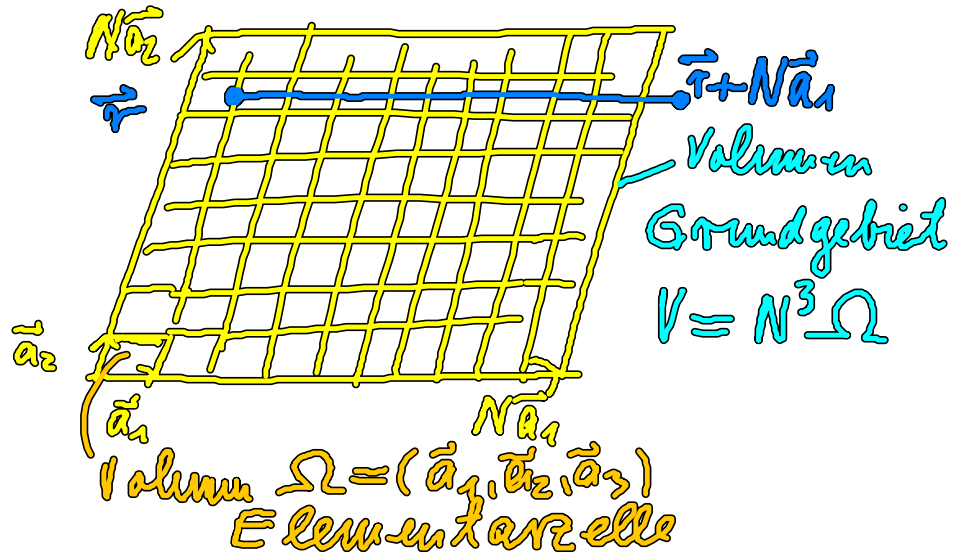 Na⃗₂
r⃗
r⃗+Na⃗₁
Volumen
Grundgebiet
V=N³Ω
a⃗₂
a⃗₁
Na⃗₁
Volumen Ω=(a⃗₁,a⃗₂,a⃗₃)
Elementarzelle